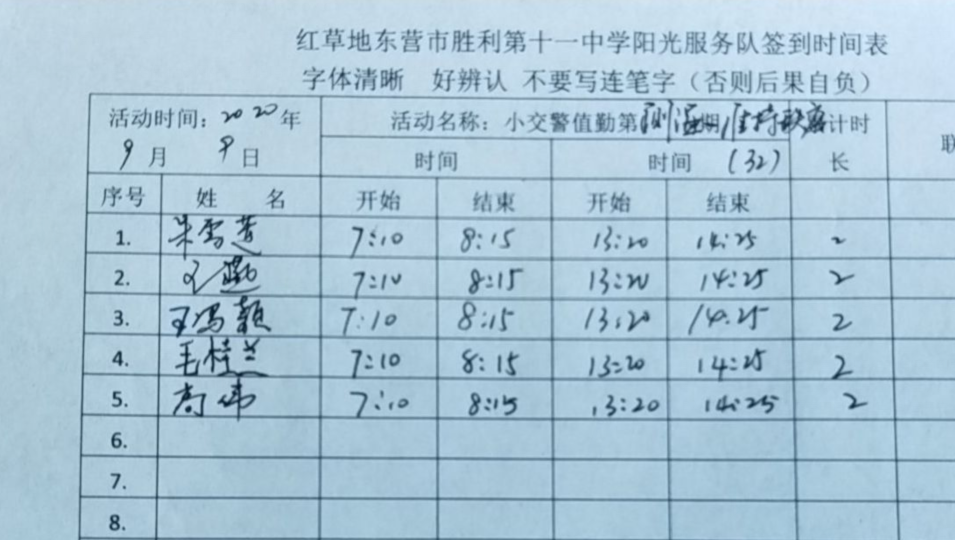 红草地东营市胜利第十一中学阳光服务队签到时间表
字体清晰 好辨认 不要写连笔字（否则后果自负）
活动时间：2020年 活动名称：小交警值勤第 测温 期 维持秩序 计时 联
9月 9日 时间 时间 (32) 长
序号 姓 名 开始 结束 开始 结束
1. 朱雪莲 7:10 8:15 13:20 14:25 2
2. 7:10 8:15 13:20 14:25 2
3. 王冯颖 7:10 8:15 13:20 14:25 2
4. 毛桂兰 7:10 8:15 13:20 14:25 2
5. 高伟 7:10 8:15 13:20 14:25 2
6.
7.
8.